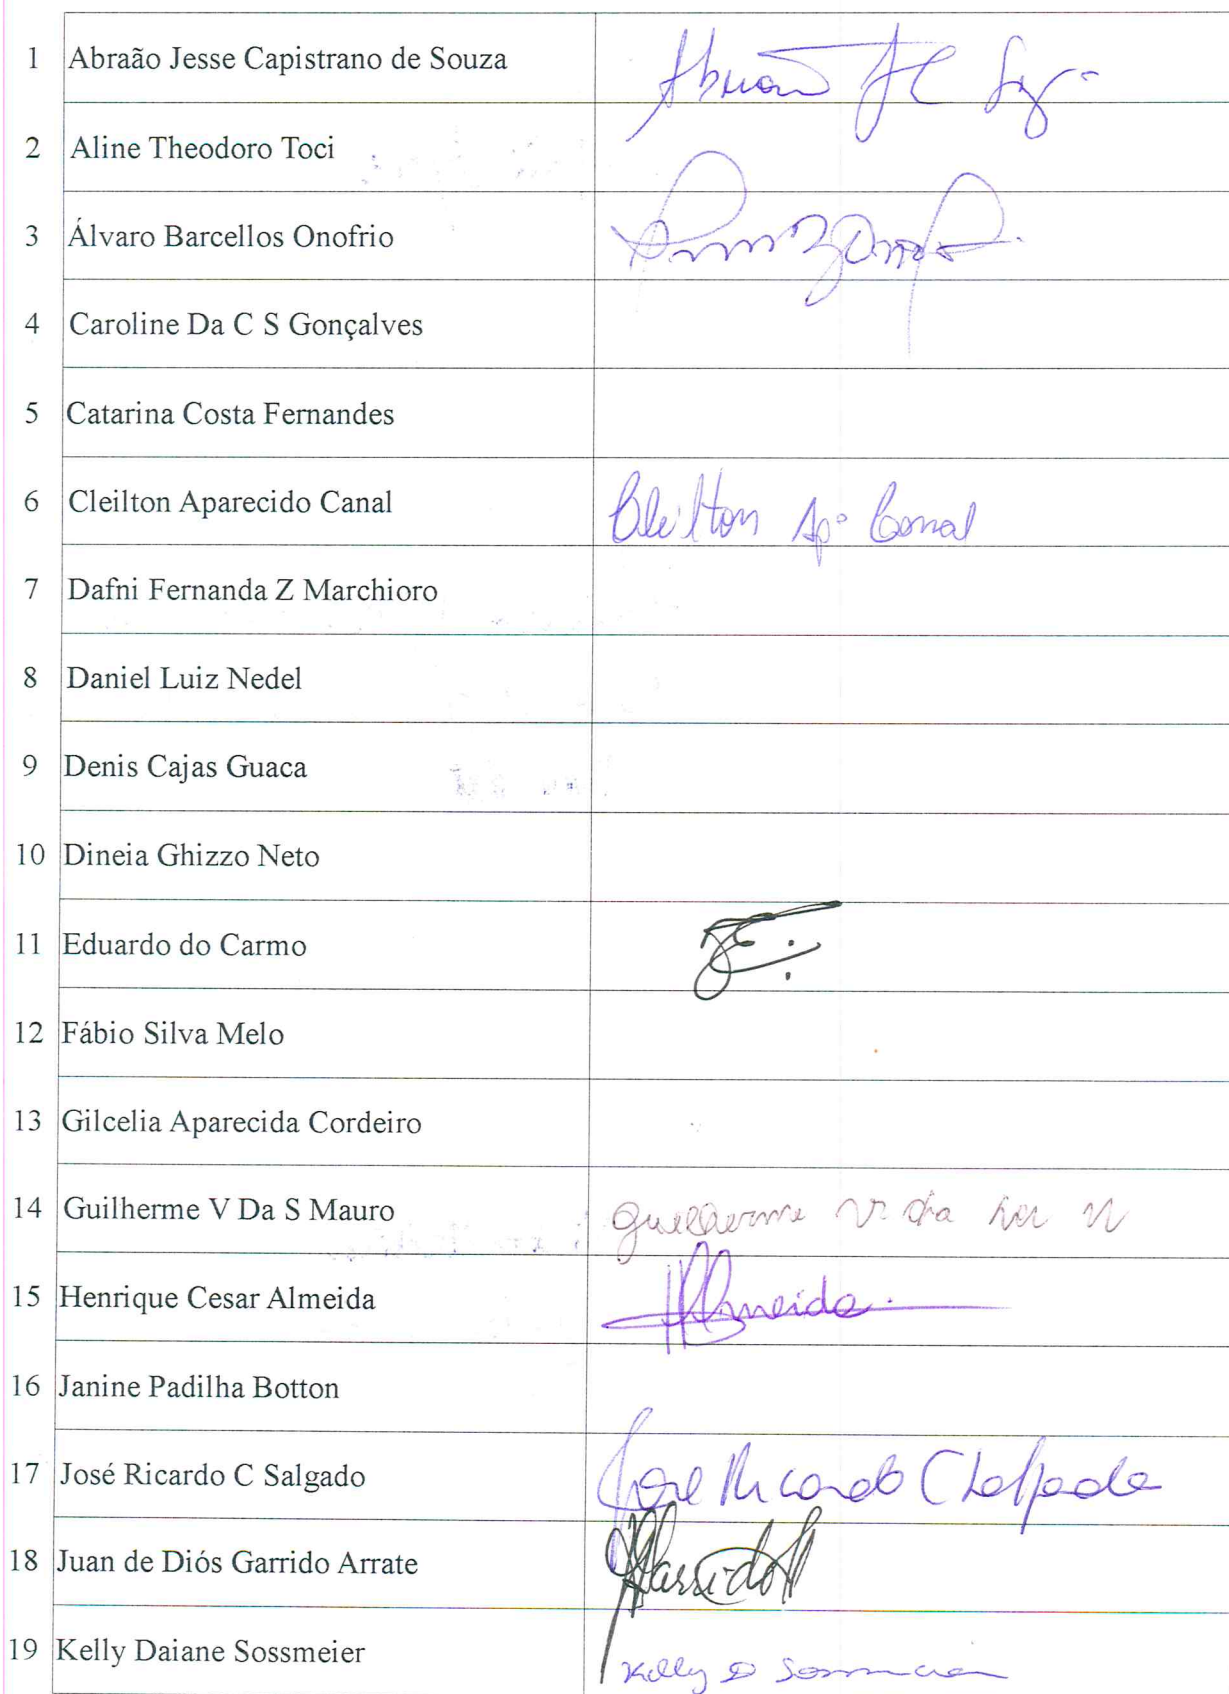 1 Abraão Jesse Capistrano de Souza
2 Aline Theodoro Toci
3 Álvaro Barcellos Onofrio
4 Caroline Da C S Gonçalves
5 Catarina Costa Fernandes
6 Cleilton Aparecido Canal Cleilton Apº Canal
7 Dafni Fernanda Z Marchioro
8 Daniel Luiz Nedel
9 Denis Cajas Guaca
10 Dineia Ghizzo Neto
11 Eduardo do Carmo
12 Fábio Silva Melo
13 Gilcelia Aparecida Cordeiro
14 Guilherme V Da S Mauro Guilherme V. da
15 Henrique Cesar Almeida HAlmeida
16 Janine Padilha Botton
17 José Ricardo C Salgado José Ricardo C Salgado
18 Juan de Diós Garrido Arrate Garrido
19 Kelly Daiane Sossmeier Kelly D Sossmeier